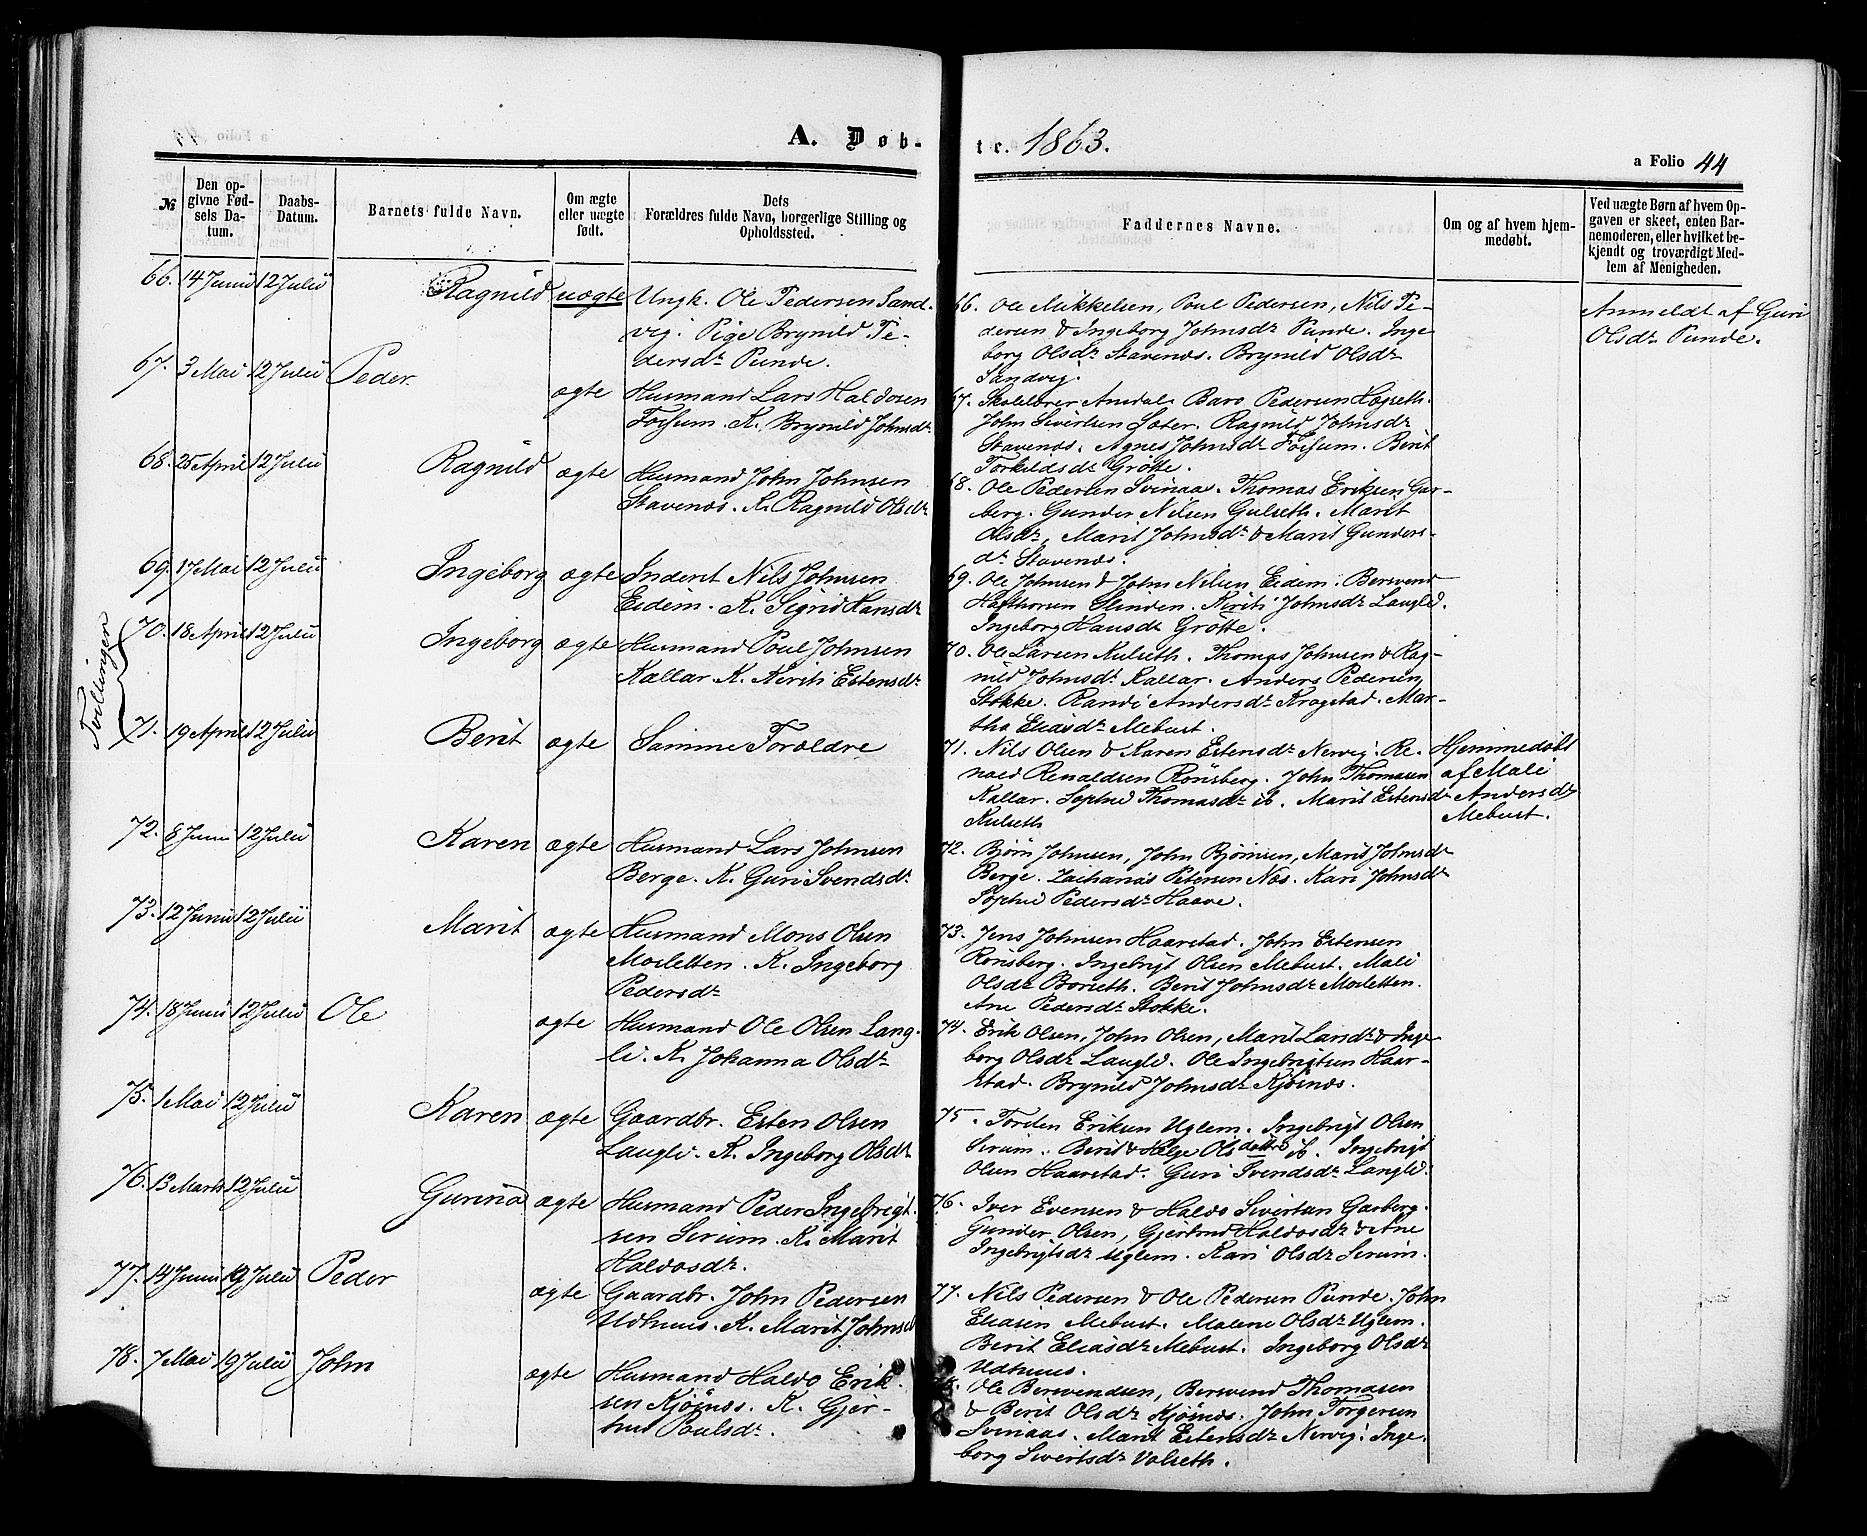 A. Døb-
te. 1863.
a Folio 44
№
Den opgivne Fødsels Datum.
Daabs-Datum.
Barnets fulde Navn.
Om ægte eller uægte født.
Dets Forældres fulde Navn, borgerlige Stilling og Opholdssted.
Faddernes Navne.
Om og af hvem hjemmedøbt.
Ved uægte Børn af hvem Opgaven er skeet, enten Barnemoderen, eller hvilket bekjendt og troværdigt Medlem af Menigheden.
66. 14 Juni 12 Julii Ragnild uægte Ungk. Ole Pedersen Sand-
vig. Pige Brynild Pe-
dersdr Punde.
66. Ole Mikkelsen, Poul Pedersen, Nils Pe-
dersen & Ingeborg Johnsdr Punde. Inge
borg Olsdr Stavenæs. Brynild Olsdr
Sandvig.
Anmeldt af Guri
Olsdr Punde.
67. 3 Mai 12 Julii Peder ægte Husmand Lars Haldosen
Fossum. K. Brynild Johnsdr
67. Skolelærer Amdal. Baro Pedersen Høgseth.
John Sivertsen Sæter. Ragnild Johnsdr
Stavenæs. Agnes Johnsdr Fossum. Berit
Torkildsdr Grøtte.
68. 25 April 12 Julii Ragnild ægte Husmand John Johnsen
Stavenæs. K. Ragnild Olsdr
68. Ole Pedersen Svinaas. Thomas Eriksen Gar-
berg. Gunder Nilsen Gulseth. Marit
Olsdr, Marit Johnsdr & Marit Gunders-
dr Stavenæs.
69. 17 Mai 12 Julii Ingeborg ægte Inderst Nils Johnsen
Eidem. K. Sigrid Hansdr
69. Ole Johnsen & John Nilsen Eidem. Bersvend
Hafthorsen Slinden. Kirsti Johnsdr Langli.
Ingeborg Hansdr Grøtte.
Tvillinger
70. 18 April 12 Julii Ingeborg ægte Husmand Poul Johnsen
Kallar K. Kirsti Estensdr
70. Ole Larsen Kulseth. Thomas Johnsen & Rag-
nild Johnsdr Kallar. Anders Pedersen
Stokke. Randi Andersdr Kragstad. Mar-
tha Eliasdr Mebust.
71. 19 April 12 Julii Berit ægte Samme Forældre
71. Nils Olsen & Karen Estensdr Nervig. Re-
nald Renaldsen Rønsberg. John Thomasen
Kallar. Sophie Thomasdr ib. Marit Estensdr
Kulseth
Hjemmedøbt
af Mali
Andersdr
Mebust.
72. 8 Juni 12 Julii Karen ægte Husmand Lars Johnsen
Berge. K. Guri Svendsdr
72. Bjørn Johnsen, John Bjørnsen, Marit Johnsdr
Berge. Zacharias Petersen Næs. Kari Johnsdr
Sophie Pedersdr Haave.
73. 12 Juni 12 Julii Marit ægte Husmand Mons Olsen
Mosletten. K. Ingeborg
Pedersdr
73. Jens Johnsen Haarstad. John Estensen
Rønsberg. Ingebrigt Olsen Mebust. Mali
Olsdr Borseth. Berit Johnsdr Mosletten.
Ane Pedersdr Stokke.
74. 18 Juni 12 Julii Ole ægte Husmand Ole Olsen Lang-
li. K. Johanna Olsdr
74. Erik Olsen, John Olsen, Marit Larsdr & Inge
borg Olsdr Langli. Ole Ingebrigtsen Haar-
stad. Brynild Johnsdr Kjøsnæs.
75. 1 Mai 12 Julii Karen ægte Gaardbr. Esten Olsen
Langli. K. Ingeborg Olsdr
75. Torsten Eriksen Uglem. Ingebrigt Olsen
Serum. Berit & Helge Olsdøttre ib. Ingebrigt
Olsen Haarstad. Guri Svendsdr Langli.
76. 13 Marts 12 Julii Gurina ægte Husmand Peder Ingebrigt-
sen Serum. K. Marit
Haldosdr.
76. Iver Evensen & Haldo Sivertsen Garberg.
Gunder Olsen, Gjertrud Haldosdr & Ane
Ingebrigtsdr Uglem. Kari Olsdr Serum.
77. 14 Juni 19 Julii Peder ægte Gaardbr. John Pedersen
Udhuus. K. Marit Johnsd
77. Nils Pedersen & Ole Pedersen Punde. John
Eliasen Mebust. Malene Olsdr Uglem.
Berit Eliasdr Mebust. Ingeborg Olsdr
Udhuus.
78. 7 Mai 19 Julii John ægte Husmand Haldo Erik-
sen Kjøsnæs. K. Gjer-
trud Poulsdr.
78. Ole Bersvendsen, Bersvend Thomasen
& Berit Olsdr Kjøsnæs. John Torgersen
Svinaas. Marit Estensdr Nervig. Inge-
borg Sivertsdr Volseth.